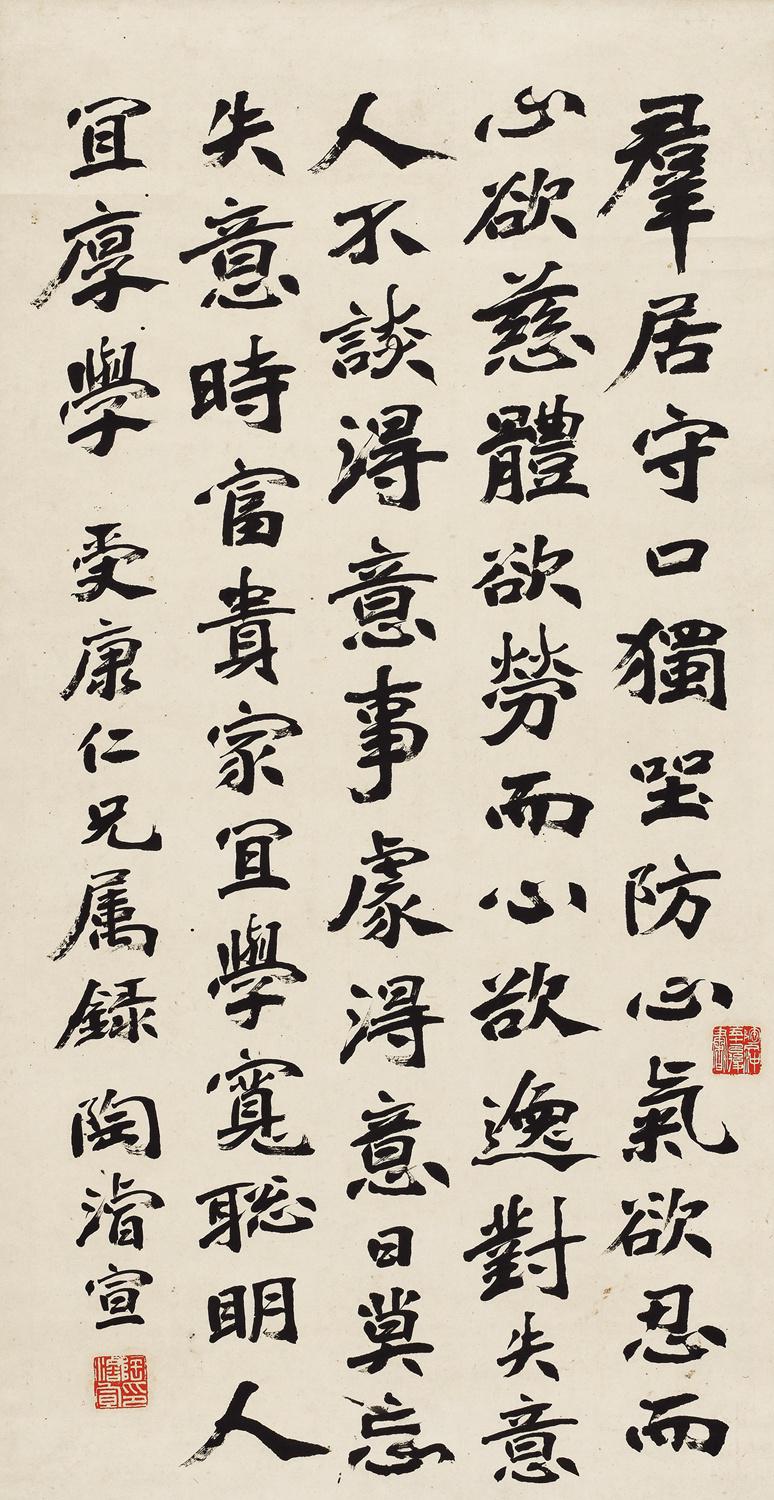 羣居守口獨坐防心氣欲忍而
心欲慈體欲勞而心欲逸對失意
人不談得意事處得意日莫忘
失意時富貴家宜學寬聰明人
宜厚學 受康仁兄属録 陶濬宣
陶濬宣印